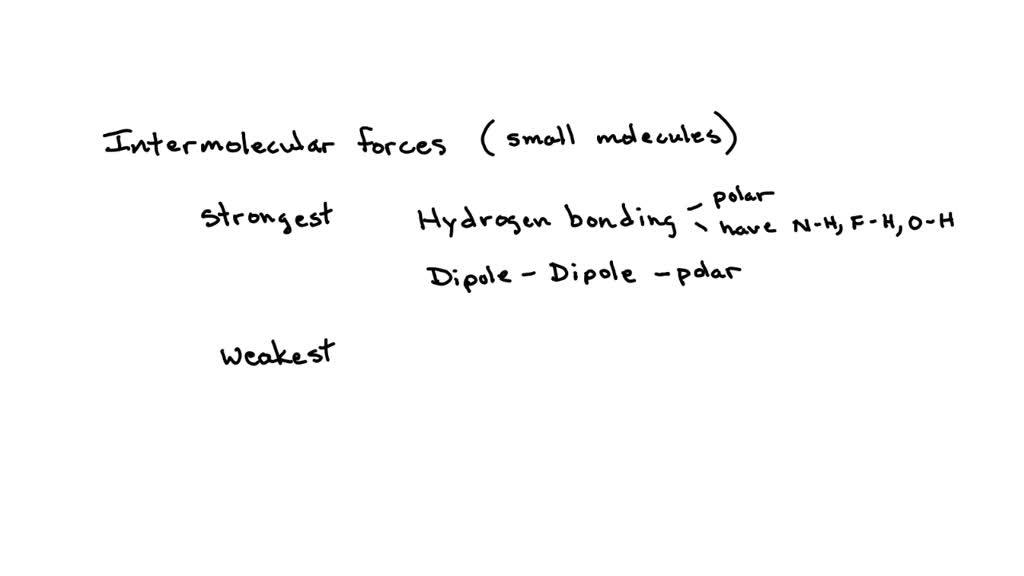 Intermolecular forces (small molecules)
strongest Hydrogen bonding - polar
- have N-H, F-H, O-H
Dipole - Dipole - polar
weakest